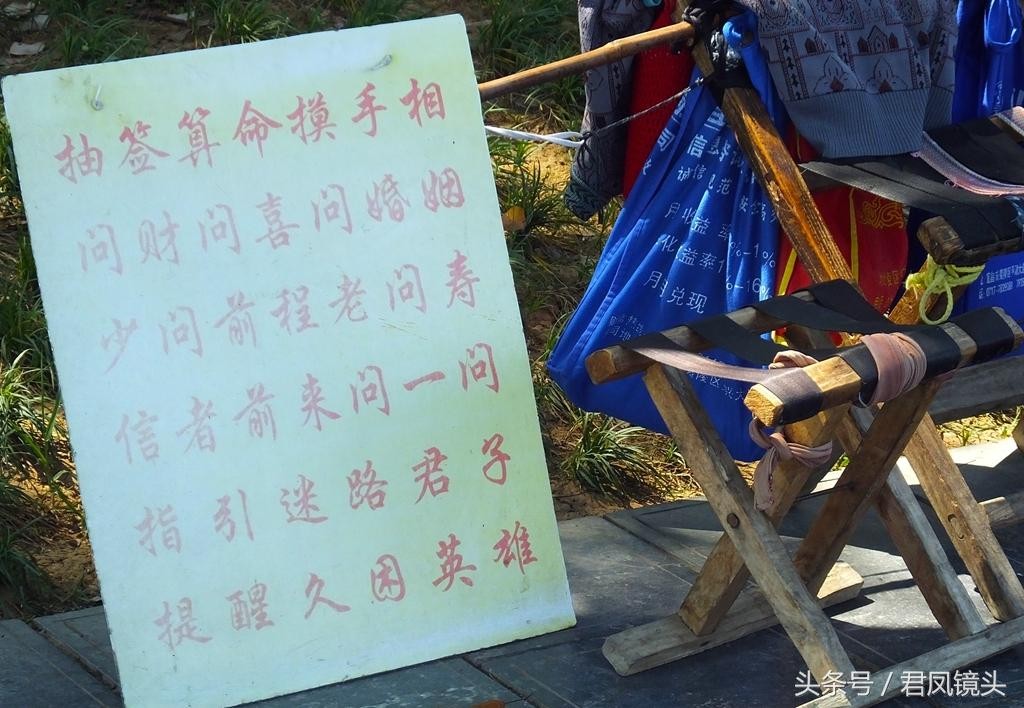 抽签算命摸手相
问财问喜问婚姻
少问前程老问寿
信者前来问一问
指引迷路君子
提醒久困英雄
诚信
月收益率
月兑现
头条号 / 君凤镜头